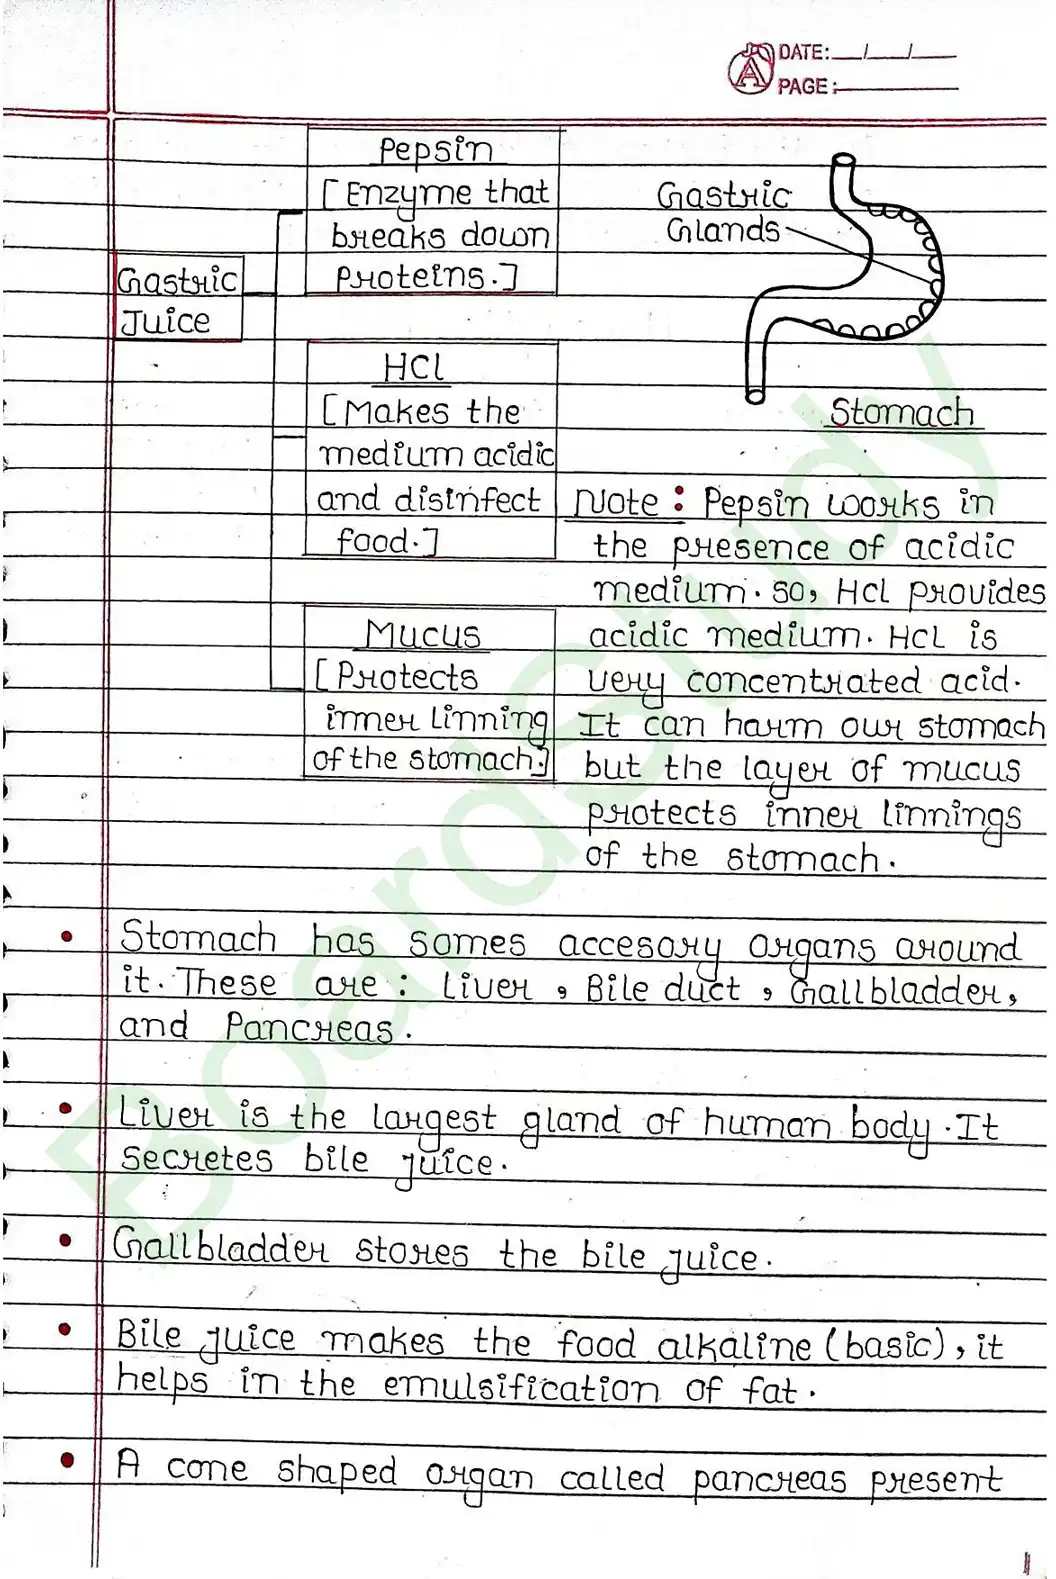 DATE: __/__/__
PAGE:
Pepsin
[Enzyme that
breaks down
Proteins.]
Gastric
Juice
HCl
[Makes the
medium acidic
and disinfect
food.]
Mucus
[Protects
inner Linning
of the stomach.]
Gastric
Glands
Stomach
Note: Pepsin works in
the presence of acidic
medium. So, HCl provides
acidic medium. HCL is
very concentrated acid.
It can harm our stomach
but the layer of mucus
protects inner linnings
of the stomach.
• Stomach has somes accesory organs around
it. These are : Liver, Bile duct, Gallbladder,
and Pancreas.
• Liver is the largest gland of human body. It
secretes bile juice.
• Gallbladder stores the bile juice.
• Bile juice makes the food alkaline (basic), it
helps in the emulsification of fat.
• A cone shaped organ called pancreas present
BoardStudy